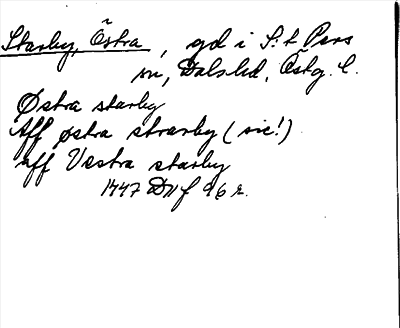 Starby, Östra, gd i S:t Pers
sn, Dalshd, Östg. l.
Østra starby
Aff østra strarby (sic!)
aff Vestra starby
1447 Dnf 96 r.